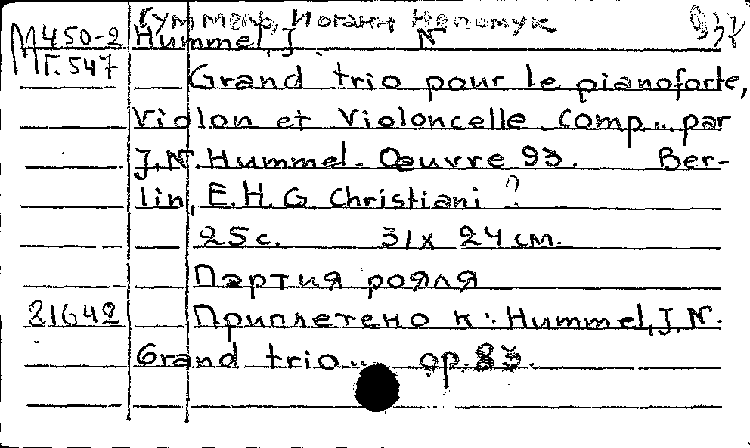 Гуммель, Иоганн Непомук
М450-2 Hummel, J. N.
МГ.547
Grand trio pour le pianoforte,
Violon et Violoncelle comp... par
J.N. Hummel. Oeuvre 93. Ber-
lin, E.H.G. Christiani ?
25 с. 31 x 24 см.
Партия рояля
21642 Приплетено к: Hummel, J.N.
Grand trio... op. 83.